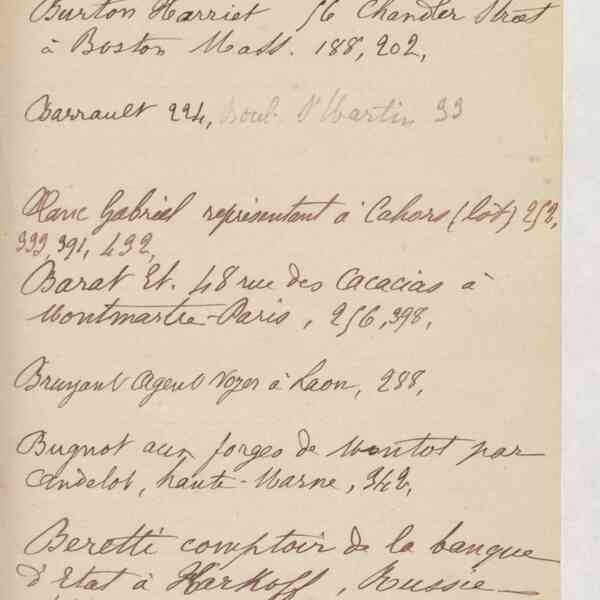 Burton Harriet 56 Chandler Street
à Boston Mass. 188, 202,
Barrault 224, Boul. St Martin 33
Blanc Gabriel représentant à Cahors (lot) 252,
333, 391, 432,
Barat Et. 48 rue des Cacacias à
Montmartre-Paris, 256, 398,
Bruyant Agent Voyer à Laon, 288,
Bugnot aux forges de Montot par
Andelot, haute-Marne, 342,
Beretti comptoir de la banque
d'Etat à Harkoff, Russie